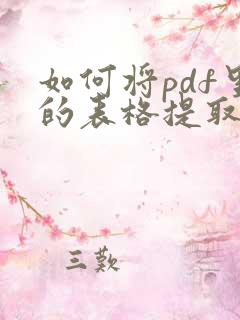 如何将pdf里
的表格提取
三歎